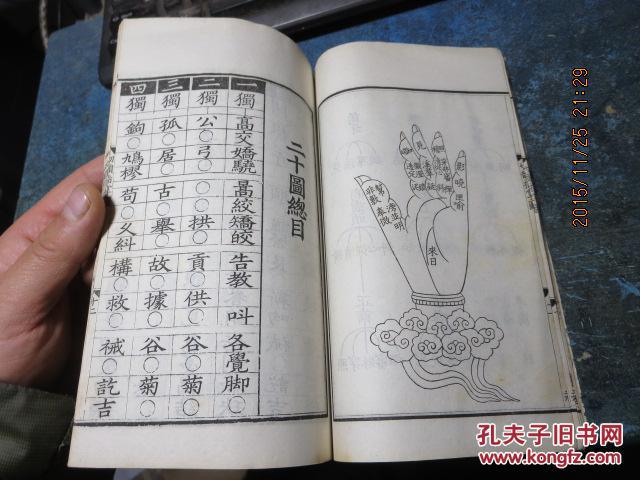 二十圖總目
一獨 高交嬌驍 杲絞矯皎 告教○叫 各覺○脚
二獨 公○弓○ ○○拱○ 貢○供○ 谷○菊○
三獨 孤○居○ 古○舉○ 故○據○ 谷○菊○
四獨 鉤○鳩樛 苟○久糾 構○救○ 祴○訖吉
影曉匣喻
見
並明
非敷奉微
來日
2015/11/25 21:29
孔夫子旧书网
www.kongfz.com